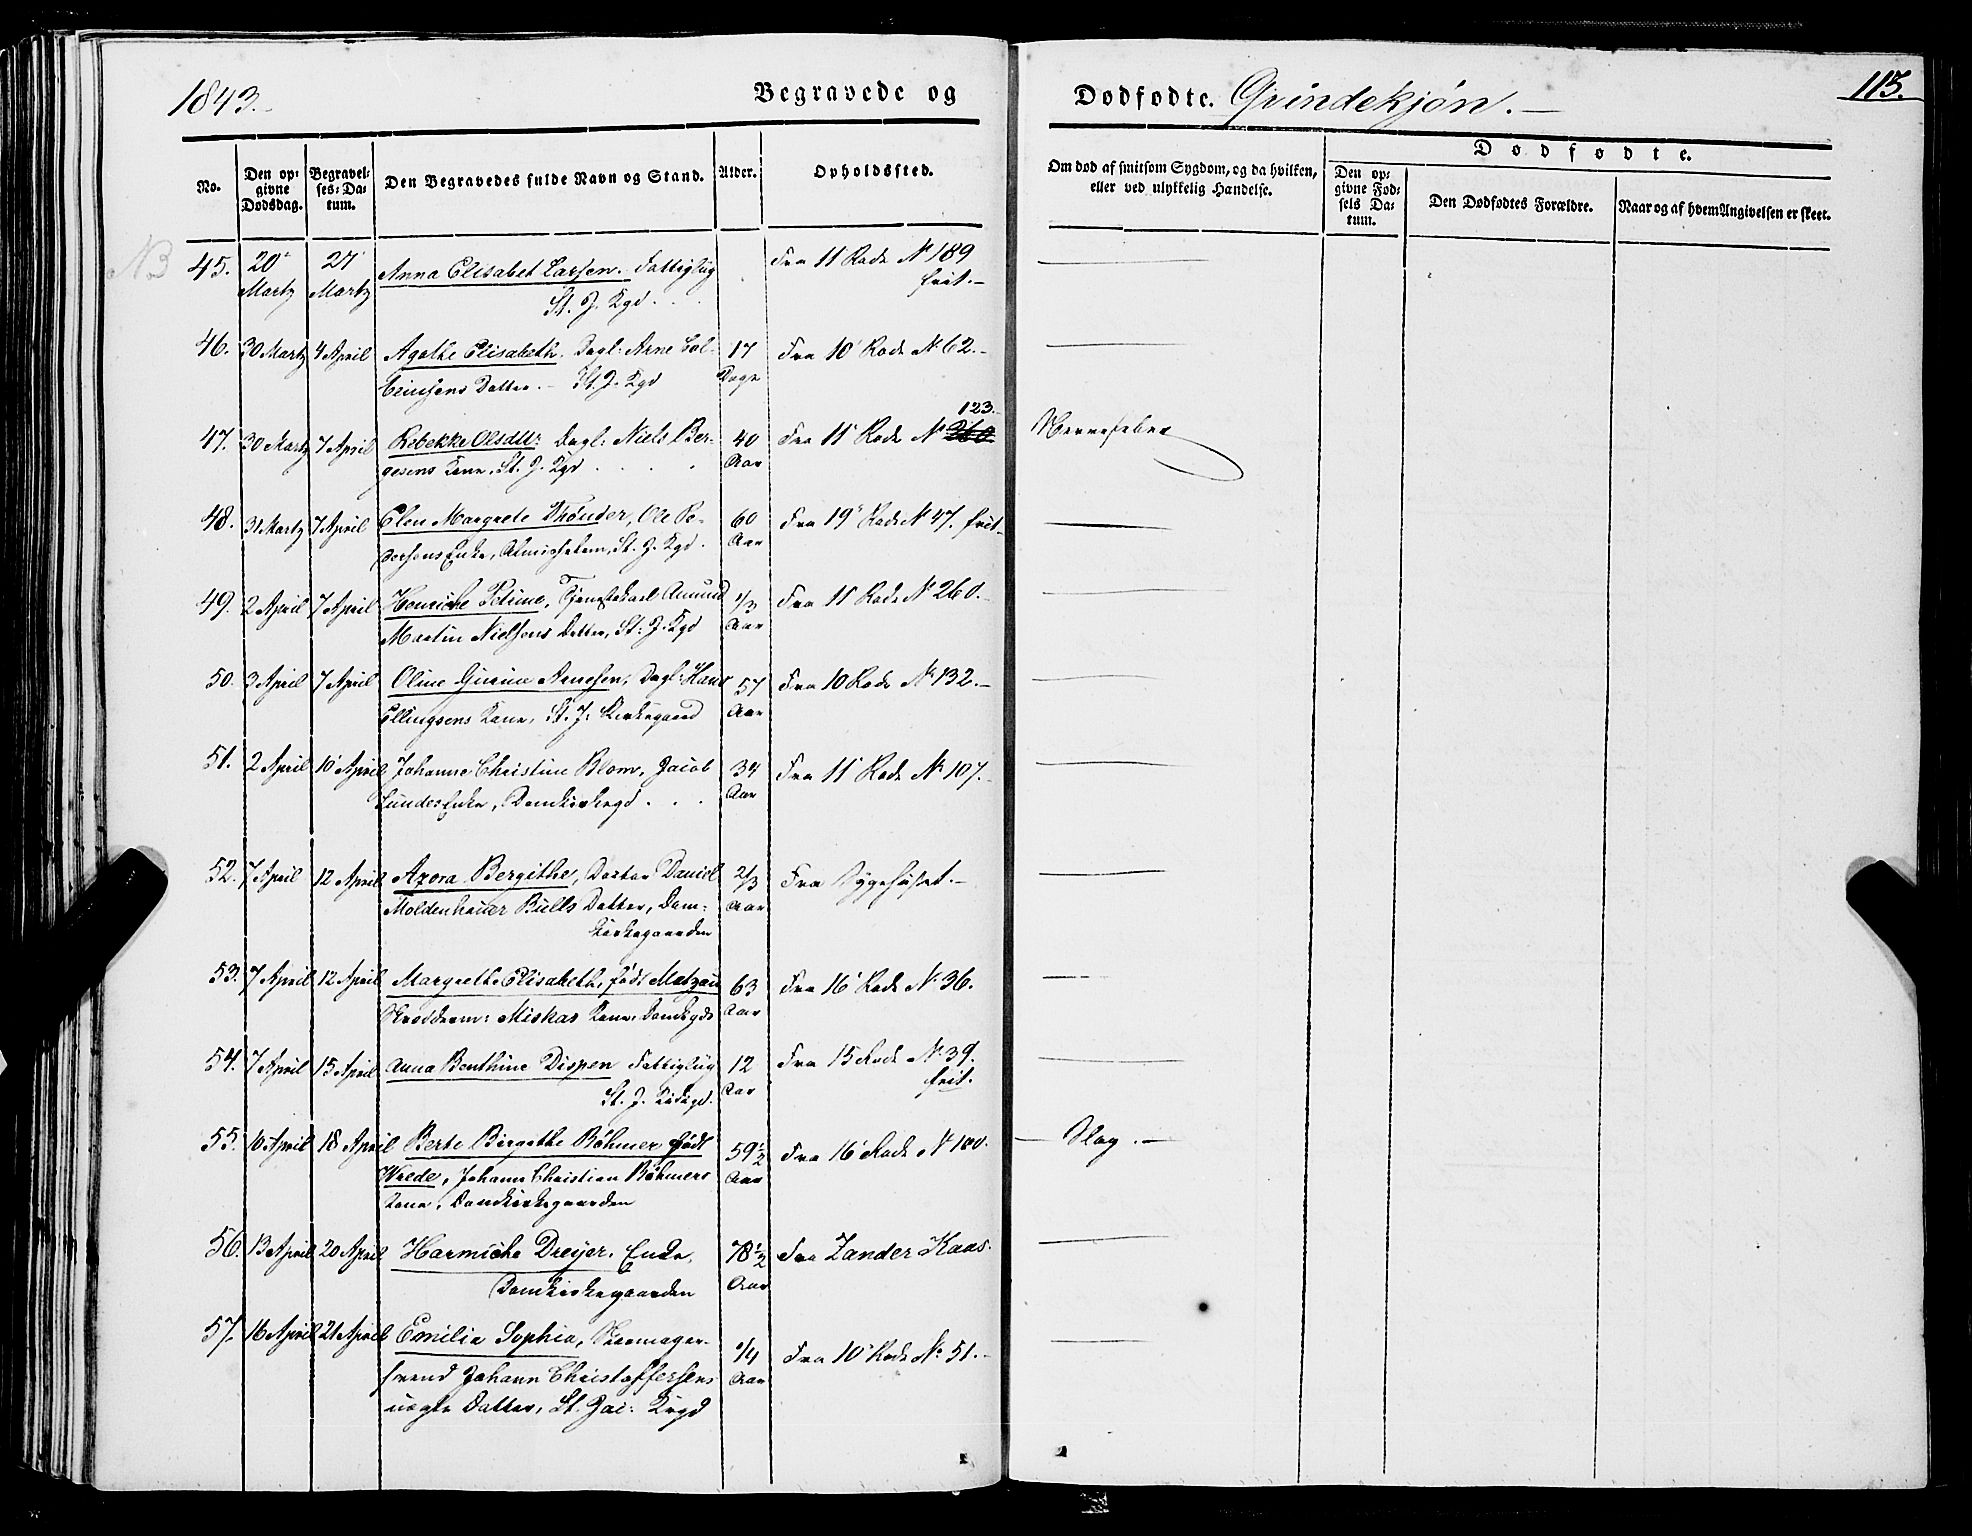 1843.
Begravede og Dødfødte. Qvindekjøn.
115.
No.
Den opgivne Dødsdag.
Begravelses-Datum.
Den Begravedes fulde Navn og Stand.
Alder.
Opholdssted.
Om død af smitsom Sygdom, og da hvilken, eller ved ulykkelig Hændelse.
Dødfødte.
Den opgivne Fødsels Datum.
Den Dødfødtes Forældre.
Naar og af hvem Angivelsen er skeet.
NB 45. 20 Martz 27 Martz Anna Elisabet Larsen. Fattiglig Fra 11 Rode No 189
St. J. Kgd. frit.
46. 30 Martz 4 April Agathe Elisabeth. Dagl: Arne Col- 17 Fra 10 Rode No 62.
Datter. St. J. Kgd Dage
47. 30 Martz 7 April Rebekke Olsdtr: Dagl: Niels Bør- 40 Fra 11 Rode No 123. 360
gesens Kone, St. J. Kgd Aar Nervefeber
48. 31 Martz 7 April Elen Margrete Thønder, Ole Pe- 60 Fra 19 Rode No 47. frit
dersens Enke, Almisselem, St. J. Kgd. Aar
49. 2 April 7 April Henriche Petime, Tjenestekarl Amund 1/3 Fra 11 Rode No 260.
Martin Nielsens Datter, St. J. Kgd Aar
50. 3 April 7 April Oline Gurine Arnesen, Dagl: Hans 57 Fra 10 Rode No 132.
Ellingsens Kone, St. J. Kirkegaard Aar
51. 2 April 10 April Johanne Christine Blom, Jacob 34 Fra 11 Rode No 107.
Lundes Enke, Domkirkegd. Aar
52. 7 April 12 April Azora Bergithe, Doctor Daniel 2/3 Fra Sygehuset.
Moldenhauer Bulls Datter, Dom- Aar
kirkegaarden
53. 7 April 12 April Margrethe Elisabeth, født Matzau 63 Fra 16 Rode No 36.
Skrædderm: Miskas Kone. Domkgd Aar
54. 7 April 15 April Anna Benthine Dispen Fattiglig 12 Fra 15 Rode No 39.
St. J. Kirkgd. Aar frit.
55. 10 April 18 April Berte Birgithe Bøhmer født 59 1/2 Fra 16 Rode No 100. Slag.
Wrede, Johann Christian Bøhmers Aar
Kone, Domkirkegaarden
56. 13 April 20 April Harmiche Dreyer. Enke, 78 1/2 Fra Zander Kaas.
Domkirkegaarden Aar
57. 16 April 21 April Emilie Sophia, Skomager- 1/4 Fra 10 Rode No 51.
svend Johann Christoffersens Aar
uægte Datter, St. Jac: Kirgd